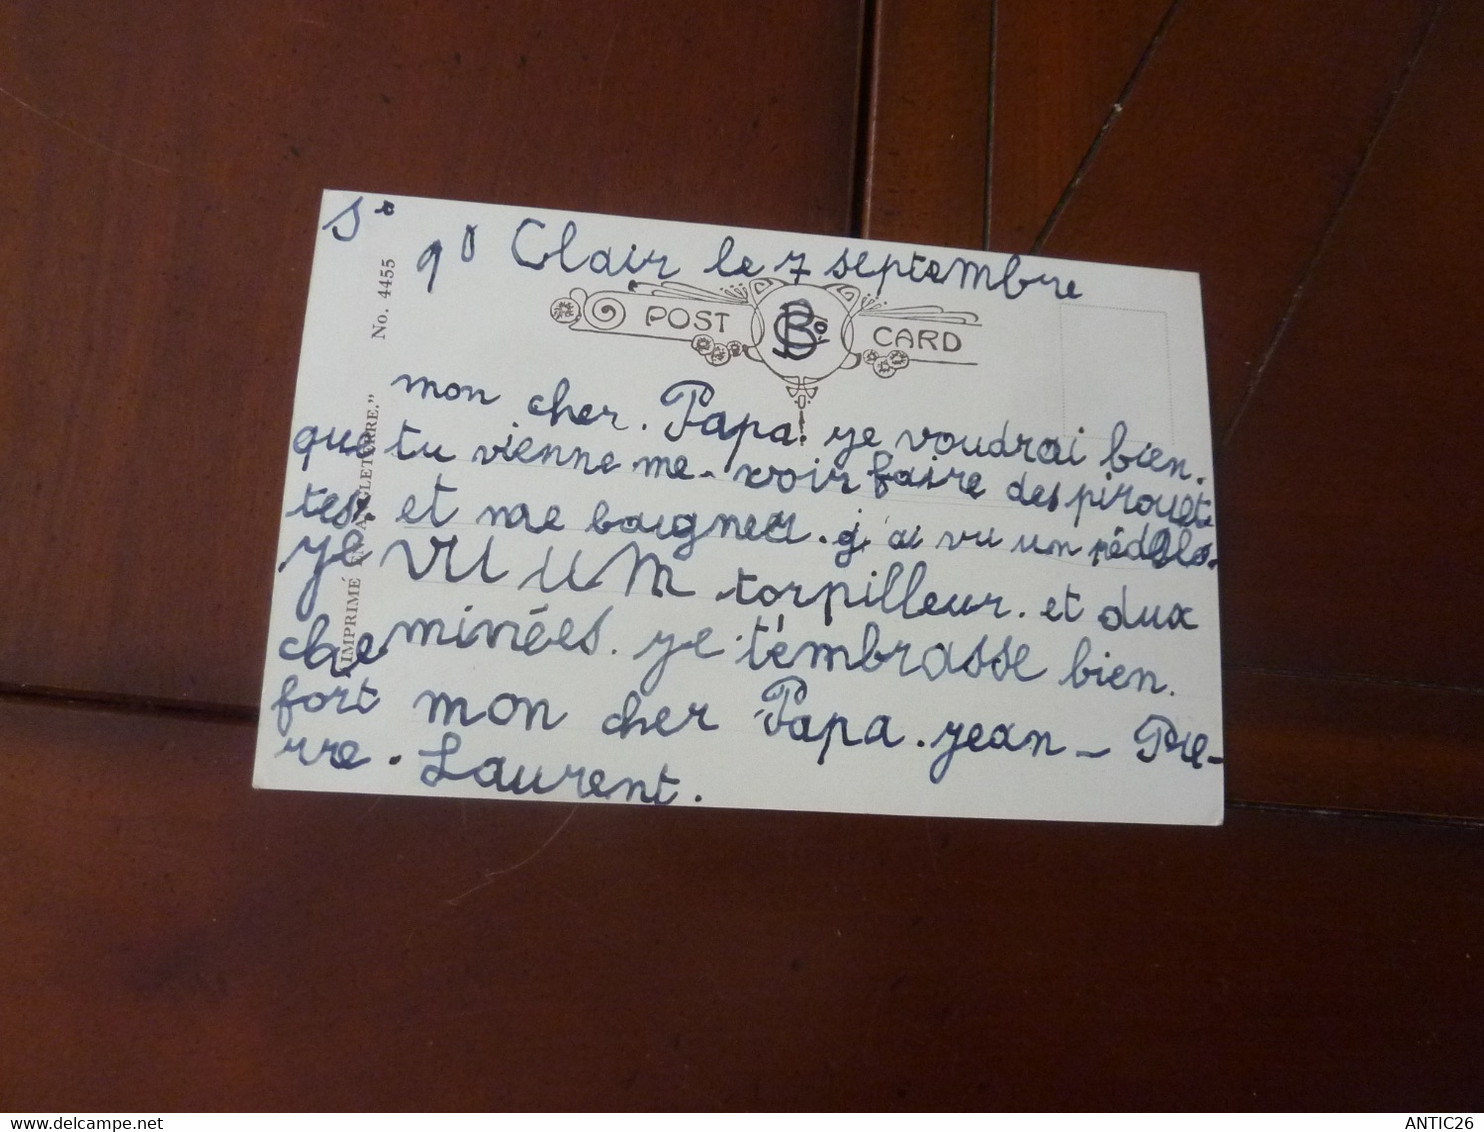 Clair le 7 septembre
No. 4455
POST CARD
IMPRIMÉ EN ANGLETERRE."
mon cher. Papa! ye voudrai bien.
que tu vienne me. voir faire des pirouet
tes. et me baigner. j'ai vu un
ye vu um torpilleur. et dux
cheminées. ye t'embrasse bien.
fort mon cher Papa. yean - Pie-
rre. Laurent.
delcampe.net
ANTIC26